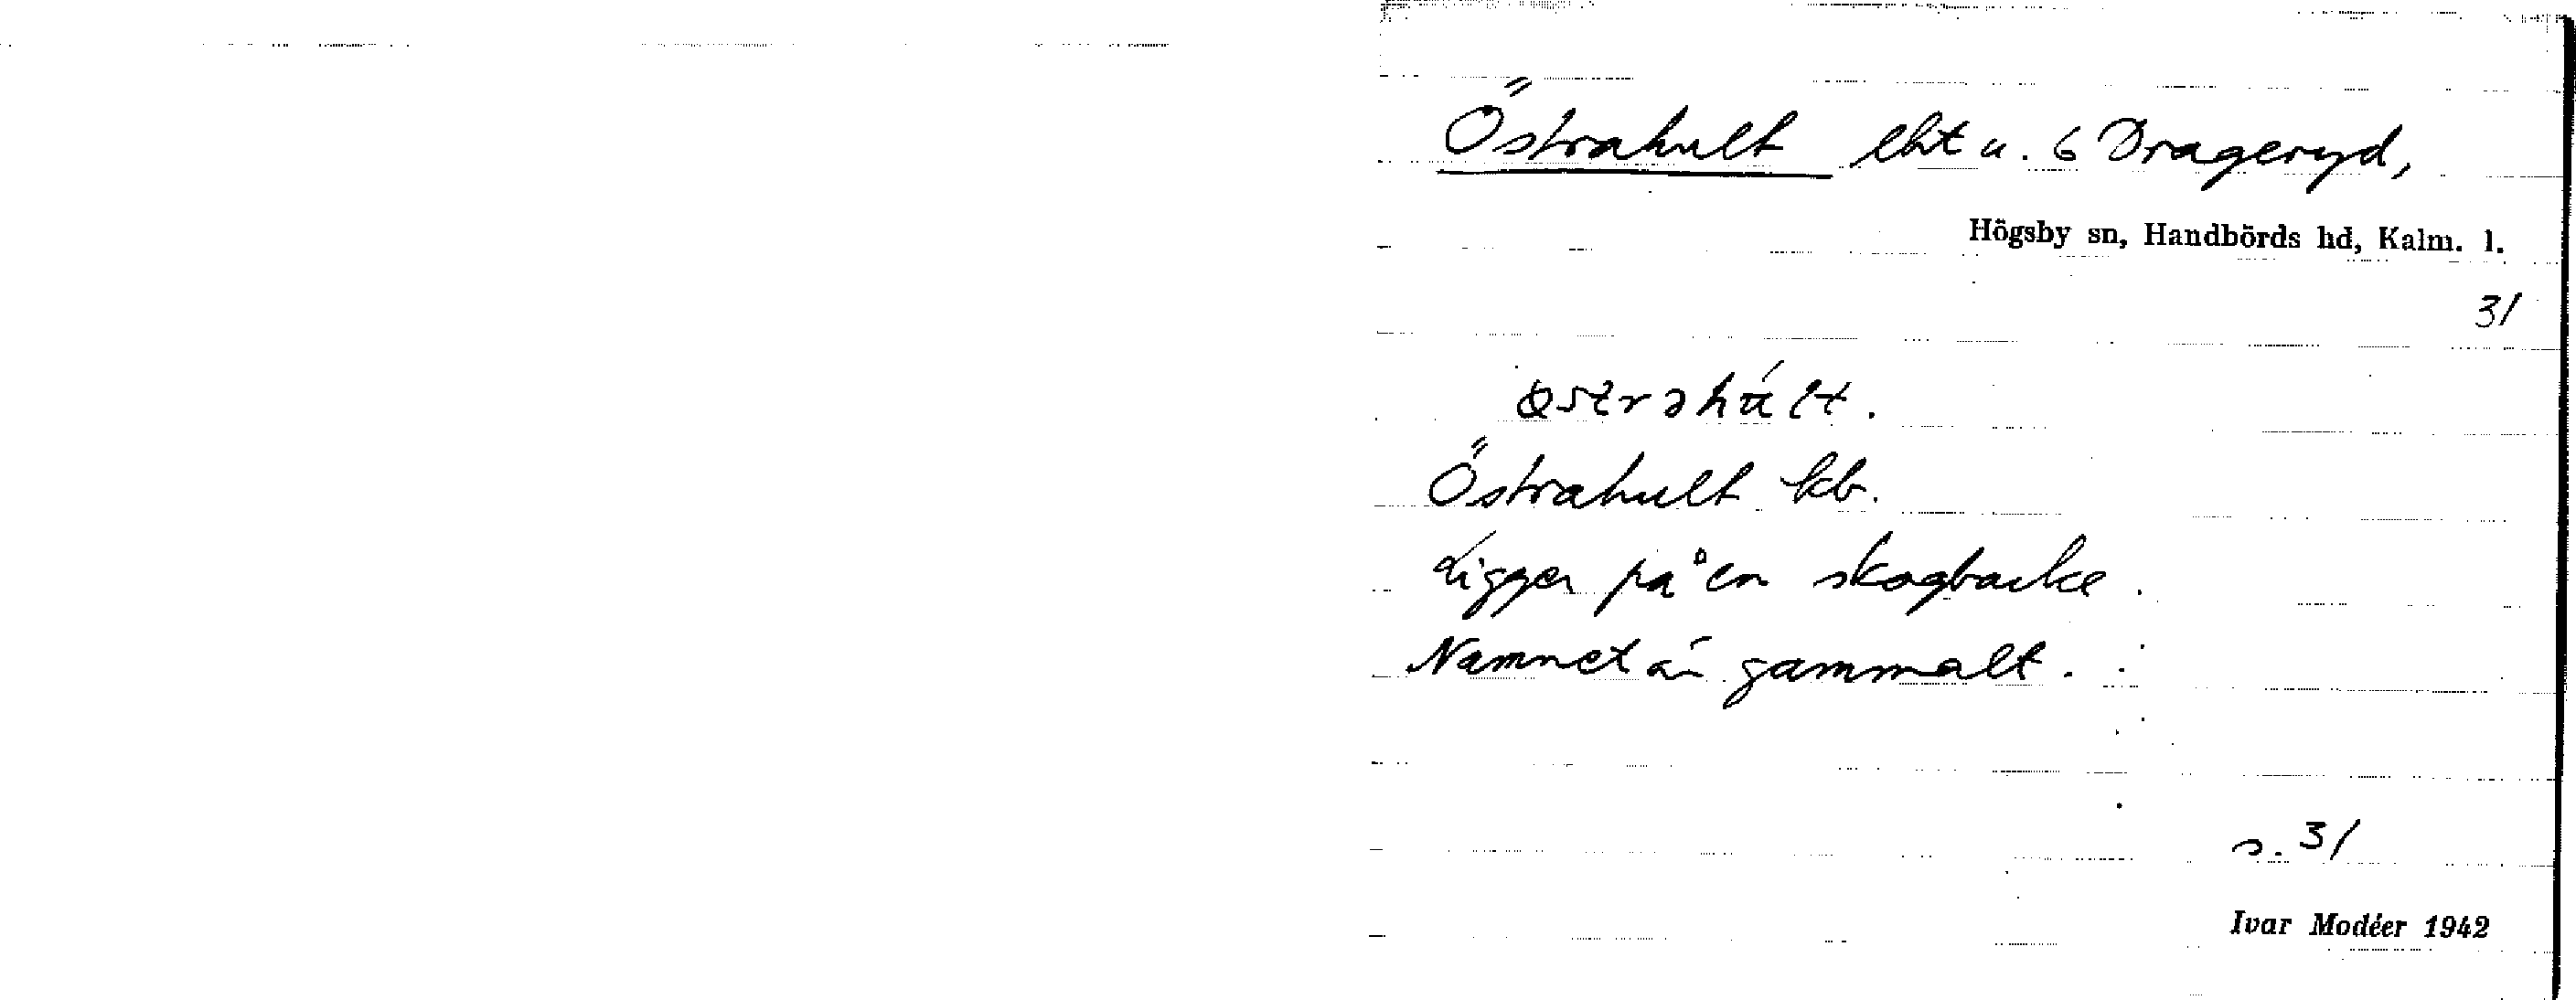 Östrahult lht u. 6 Drageryd,
Högsby sn, Handbörds hd, Kalm. l.
31
Östrahult kb.
Ligger på en skogbacke.
Namnet är gammalt.
s. 31
Ivar Modéer 1942